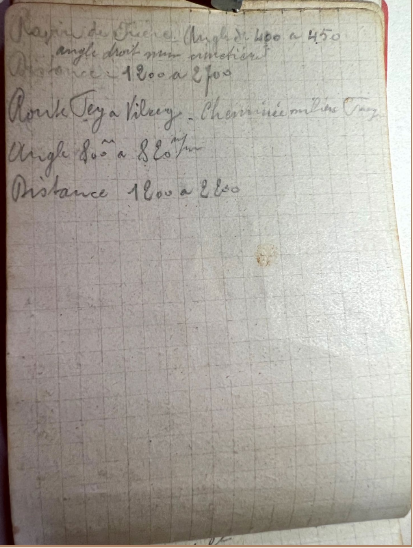 Ravin de Angle de 400 a 450
angle droit mur cimetière
Distance = 1200 a 2700
Route Tey a Vilcey - Cheminée milieu
Angle 800 a 820
Distance 1200 a 2200